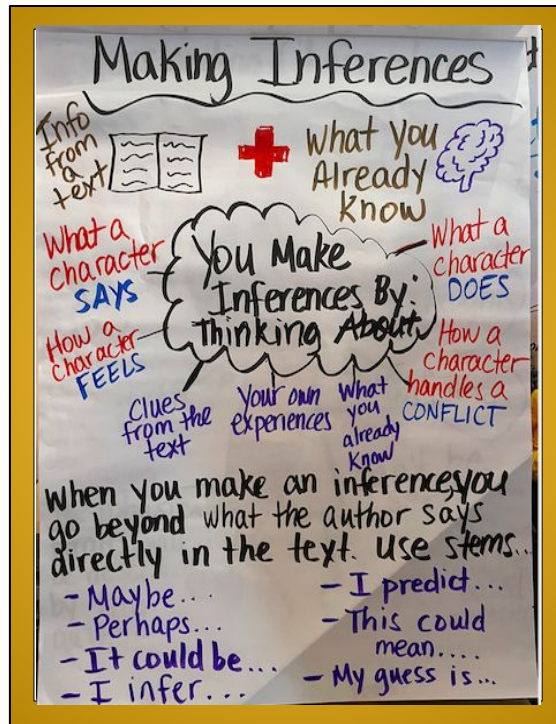 Making Inferences
Info
from
a
text
What you
Already
Know
What a
character
SAYS
How a
character
FEELS
You Make
Inferences By:
Thinking About
What a
character
DOES
How a
character
handles a
CONFLICT
Clues
from the
text
Your own
experiences
What
you
already
know
When you make an inference, you
go beyond what the author says
directly in the text. Use stems...
- Maybe...
- Perhaps...
- It could be...
- I infer...
- I predict...
- This could
mean....
- My guess is...